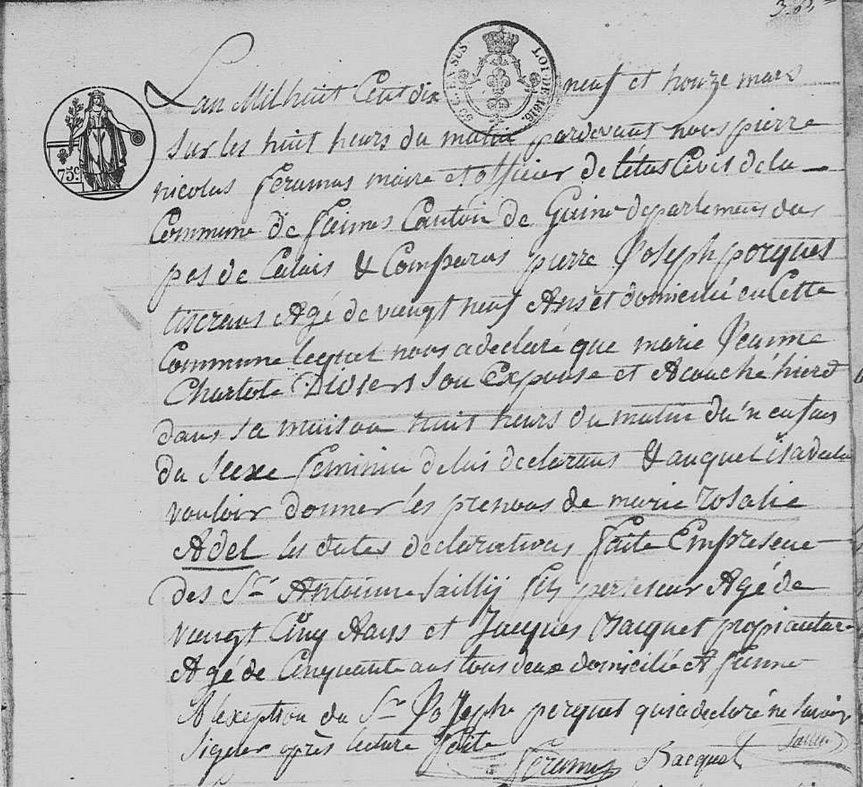 75c.
95 C. EN SUS LOI DE 1816.
Lan Mil huit Cent dix neuf et honze mars
sur les huit heurs du matin pardevant nous pierre
nicolas maire et officier de létat Civil de la
Commune de fiennes Canton de Guine departement du
pas de Calais & Comparus pierre Joseph porquet
tiscrans Agé de viengt neuf Ans et domicilié en Cette
Commune lequel nous a declaré que marie Jeanne
Charlote son Expouse et Acouché hiere
dans sa maison huit heurs du matin du'n enfans
du sexe feminin de lui declarans & auquel
vouloir donner les prenons de marie rosalie
Adel les dutes declarations faite En presence
des Sr Antoinne Sailly Agé de
viengt Cinq Anss et Jacques Bacquet
Agé de Cinquante ans tous deux domicilié A fienne
A lexeption du Sr Jossephe perquet qui a declaré ne savoir
signer après lecture faite
Bacquet Sailly